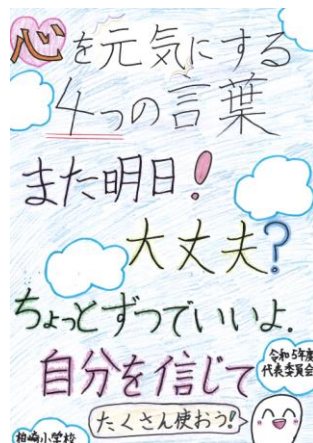 心を元気にする
4つの言葉
また明日!
大丈夫?
ちょっとずつでいいよ.
自分を信じて
令和5年度
代表委員会
たくさん使おう!
柏崎小学校